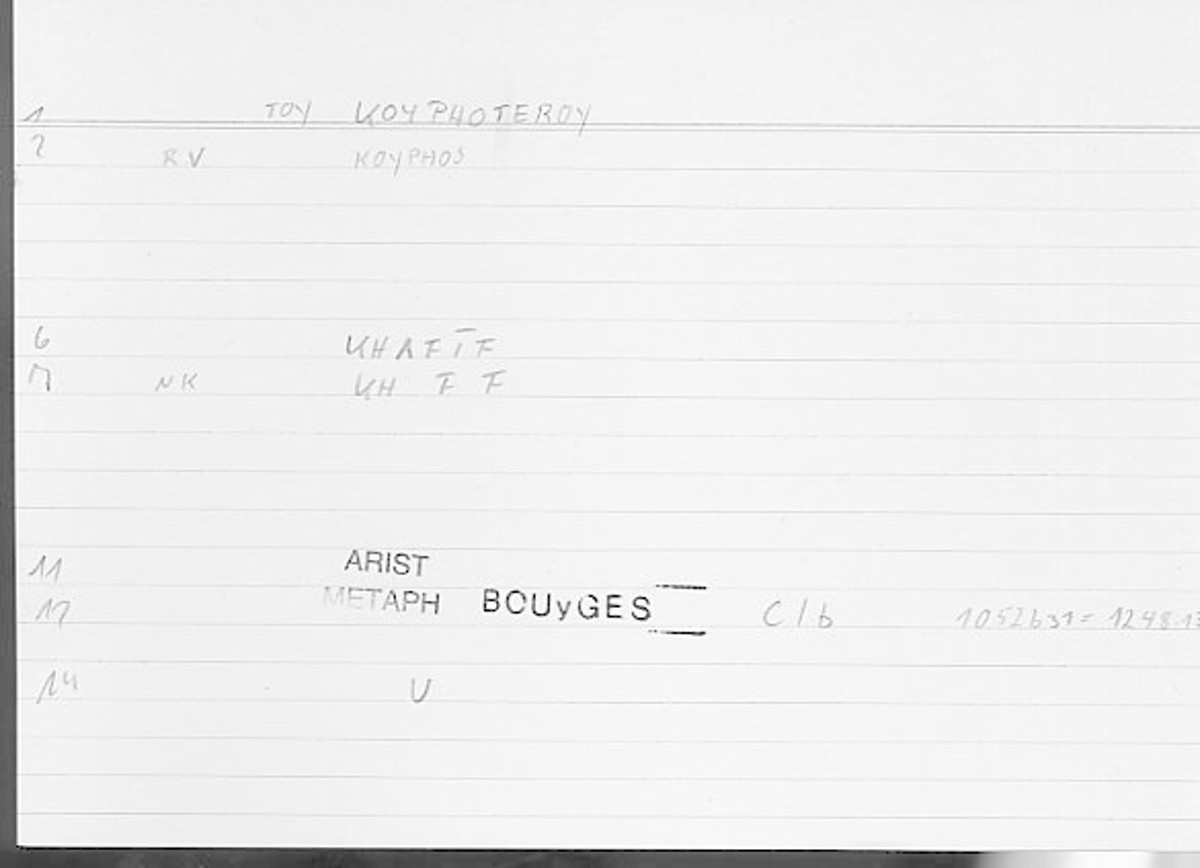 1 TOY KOYPHOTEROY
2 RV KOYPHOS
6 KHAFĪF
7 NK KH F F
11 ARIST
12 METAPH BOUyGES C/b 1052b31= 1248.13
14 V